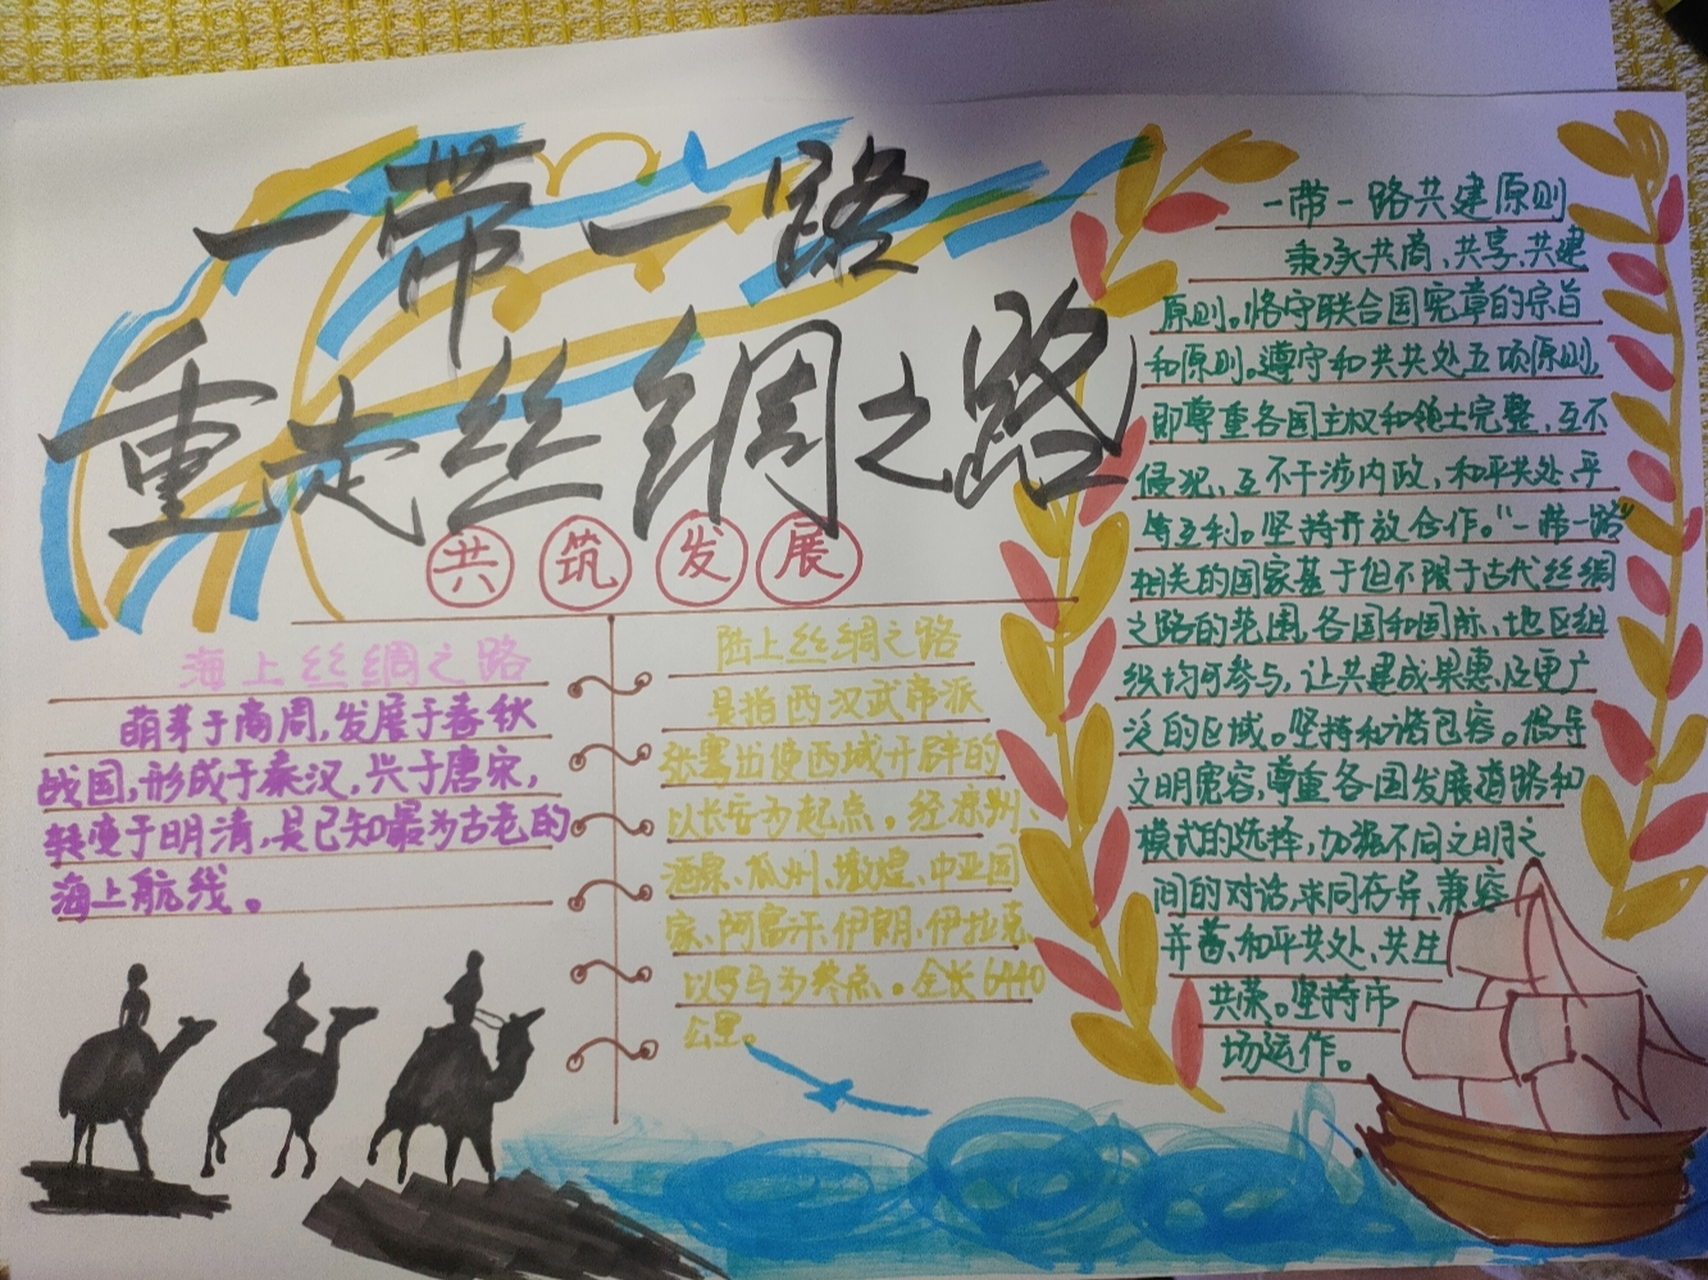 一带一路
重走丝绸之路
共筑发展
海上丝绸之路
萌芽于商周,发展于春秋
战国,形成于秦汉,兴于唐宋,
转变于明清,是已知最为古老的
海上航线。
陆上丝绸之路
是指西汉武帝派
张骞出使西域开辟的
以长安为起点。经凉州、
酒泉、瓜州、敦煌、中亚国
家、阿富汗、伊朗、伊拉克
以罗马为终点。全长6440
公里。
一带一路共建原则
秉承共商、共享、共建
原则。恪守联合国宪章的宗旨
和原则。遵守和共共处五项原则,
即尊重各国主权和领土完整、互不
侵犯、互不干涉内政、和平共处、平
等互利。坚持开放合作。“一带一路”
相关的国家基于但不限于古代丝绸
之路的范围,各国和国际、地区组
织均可参与,让共建成果惠及更广
泛的区域。坚持和谐包容。倡导
文明宽容,尊重各国发展道路和
模式的选择,加强不同文明之
间的对话,求同存异、兼容
并蓄、和平共处、共生
共荣。坚持市
场运作。